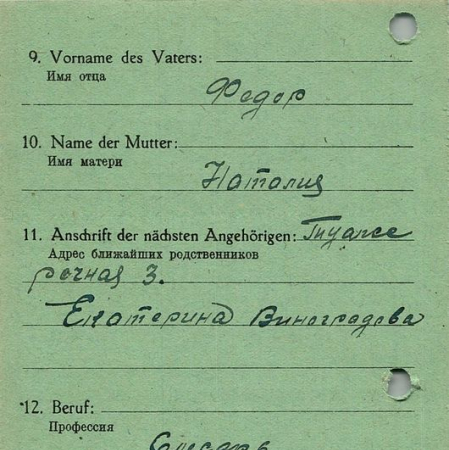 9. Vorname des Vaters:
Имя отца
Федор
10. Name der Mutter:
Имя матери
Наталия
11. Anschrift der nächsten Angehörigen:
Адрес ближайших родственников
речная 3.
Екатерина Виноградова
12. Beruf:
Профессия
Слесарь